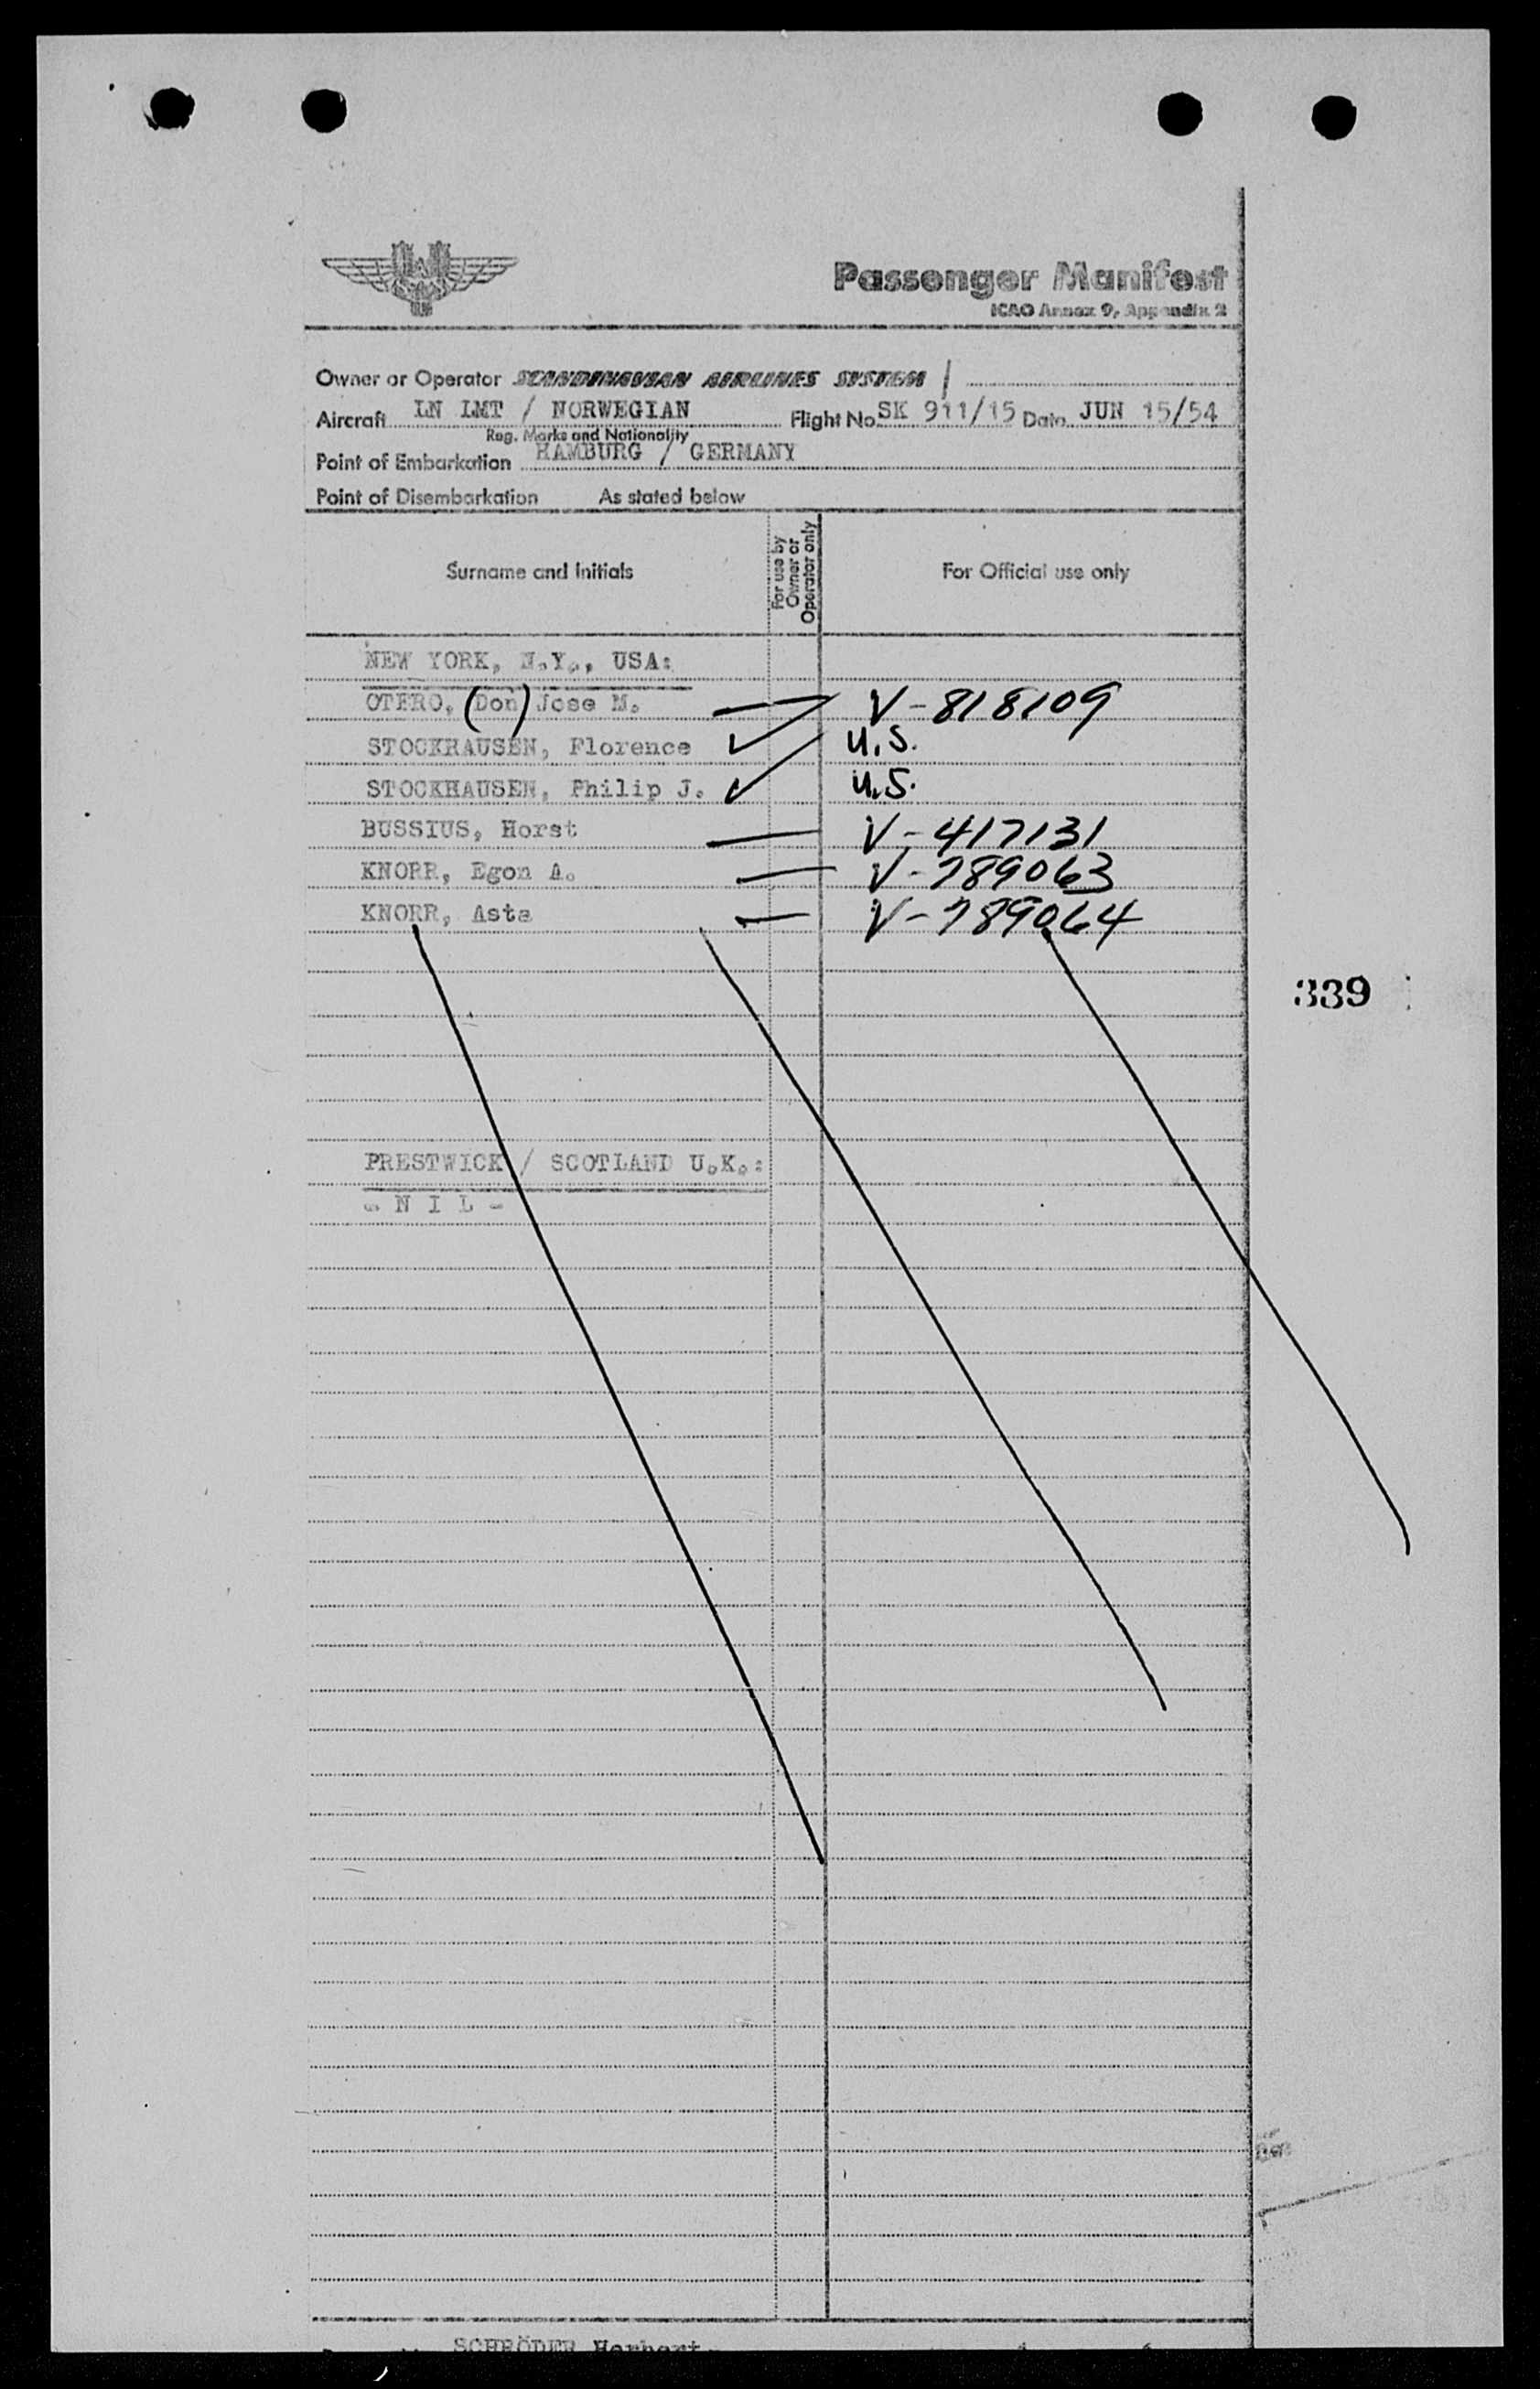 Passenger Manifest
ICAO Annex 9, Appendix 2
Owner or Operator SCANDINAVIAN AIRLINES SYSTEM /
Aircraft LN LMT / NORWEGIAN Flight No. SK 911/15 Date JUN 15/54
Reg. Marks and Nationality
Point of Embarkation HAMBURG / GERMANY
Point of Disembarkation As stated below
Surname and Initials For use by Owner or Operator only For Official use only
NEW YORK, N.Y., USA:
OTERO, (Don) Jose M. — V-818109
STOCKHAUSEN, Florence ✓ U.S.
STOCKHAUSEN, Philip J. ✓ U.S.
BUSSIUS, Horst — V-417131
KNORR, Egon A. — V-789063
KNORR, Asta — V-789064
339
PRESTWICK / SCOTLAND U.K.:
- N I L -
SCHRÖDER Herbert